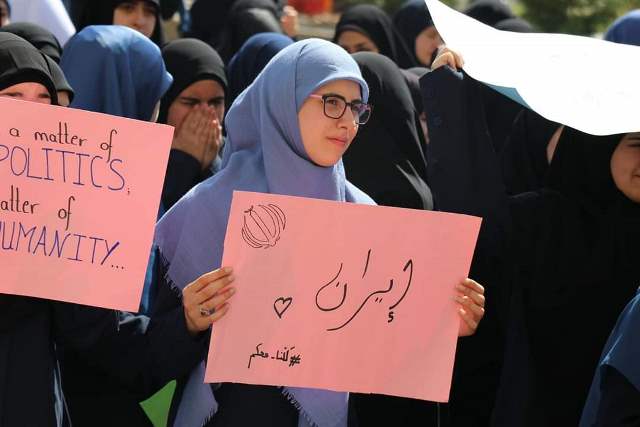 a matter of
POLITICS,
atter of
HUMANITY...
إيران
#كلنا_معكم